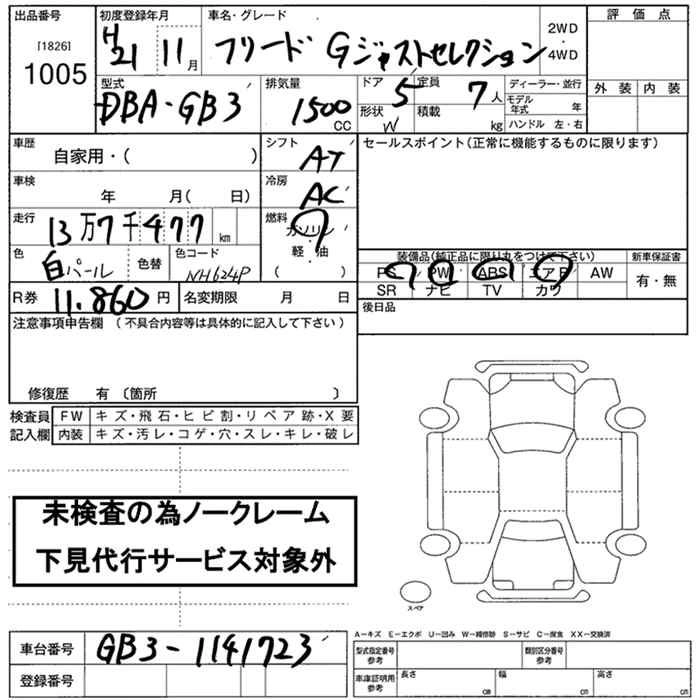 出品番号
[1826]
1005
初度登録年月
H21 11月
車名・グレード
フリード Gジャストセレクション
2WD
・
4WD
評価点
外装 内装
型式
DBA-GB3
排気量
1500
CC
ドア 5
形状 W
定員 7人
積載 kg
ディーラー・並行
モデル年式 年
ハンドル 左・右
車歴
自家用・( )
シフト
AT
セールスポイント(正常に機能するものに限ります)
車検
年 月( 日)
冷房
AC
走行
13万7千477km
燃料
ガソリン
軽・油
( )
色
白パール
色替
色コード
NH624P
装備品(純正品に限り丸をつけて下さい)
PS PW ABS エアB AW
SR ナビ TV カワ
新車保証書
有・無
R券 11.860円
名変期限 月 日
後日品
注意事項申告欄 (不具合内容等は具体的に記入して下さい)
修復歴 有 〔箇所 〕
検査員
記入欄
FW キズ・飛石・ヒビ割・リペア跡・X要
内装 キズ・汚レ・コゲ・穴・スレ・キレ・破レ
未検査の為ノークレーム
下見代行サービス対象外
スペア
車台番号 GB3-1141723
登録番号
A-キズ E-エクボ U-凹み W-補修跡 S-サビ C-腐食 XX-交換済
型式指定番号
参考
類別区分番号
参考
車庫証明用
参考
長さ cm
幅 cm
高さ cm